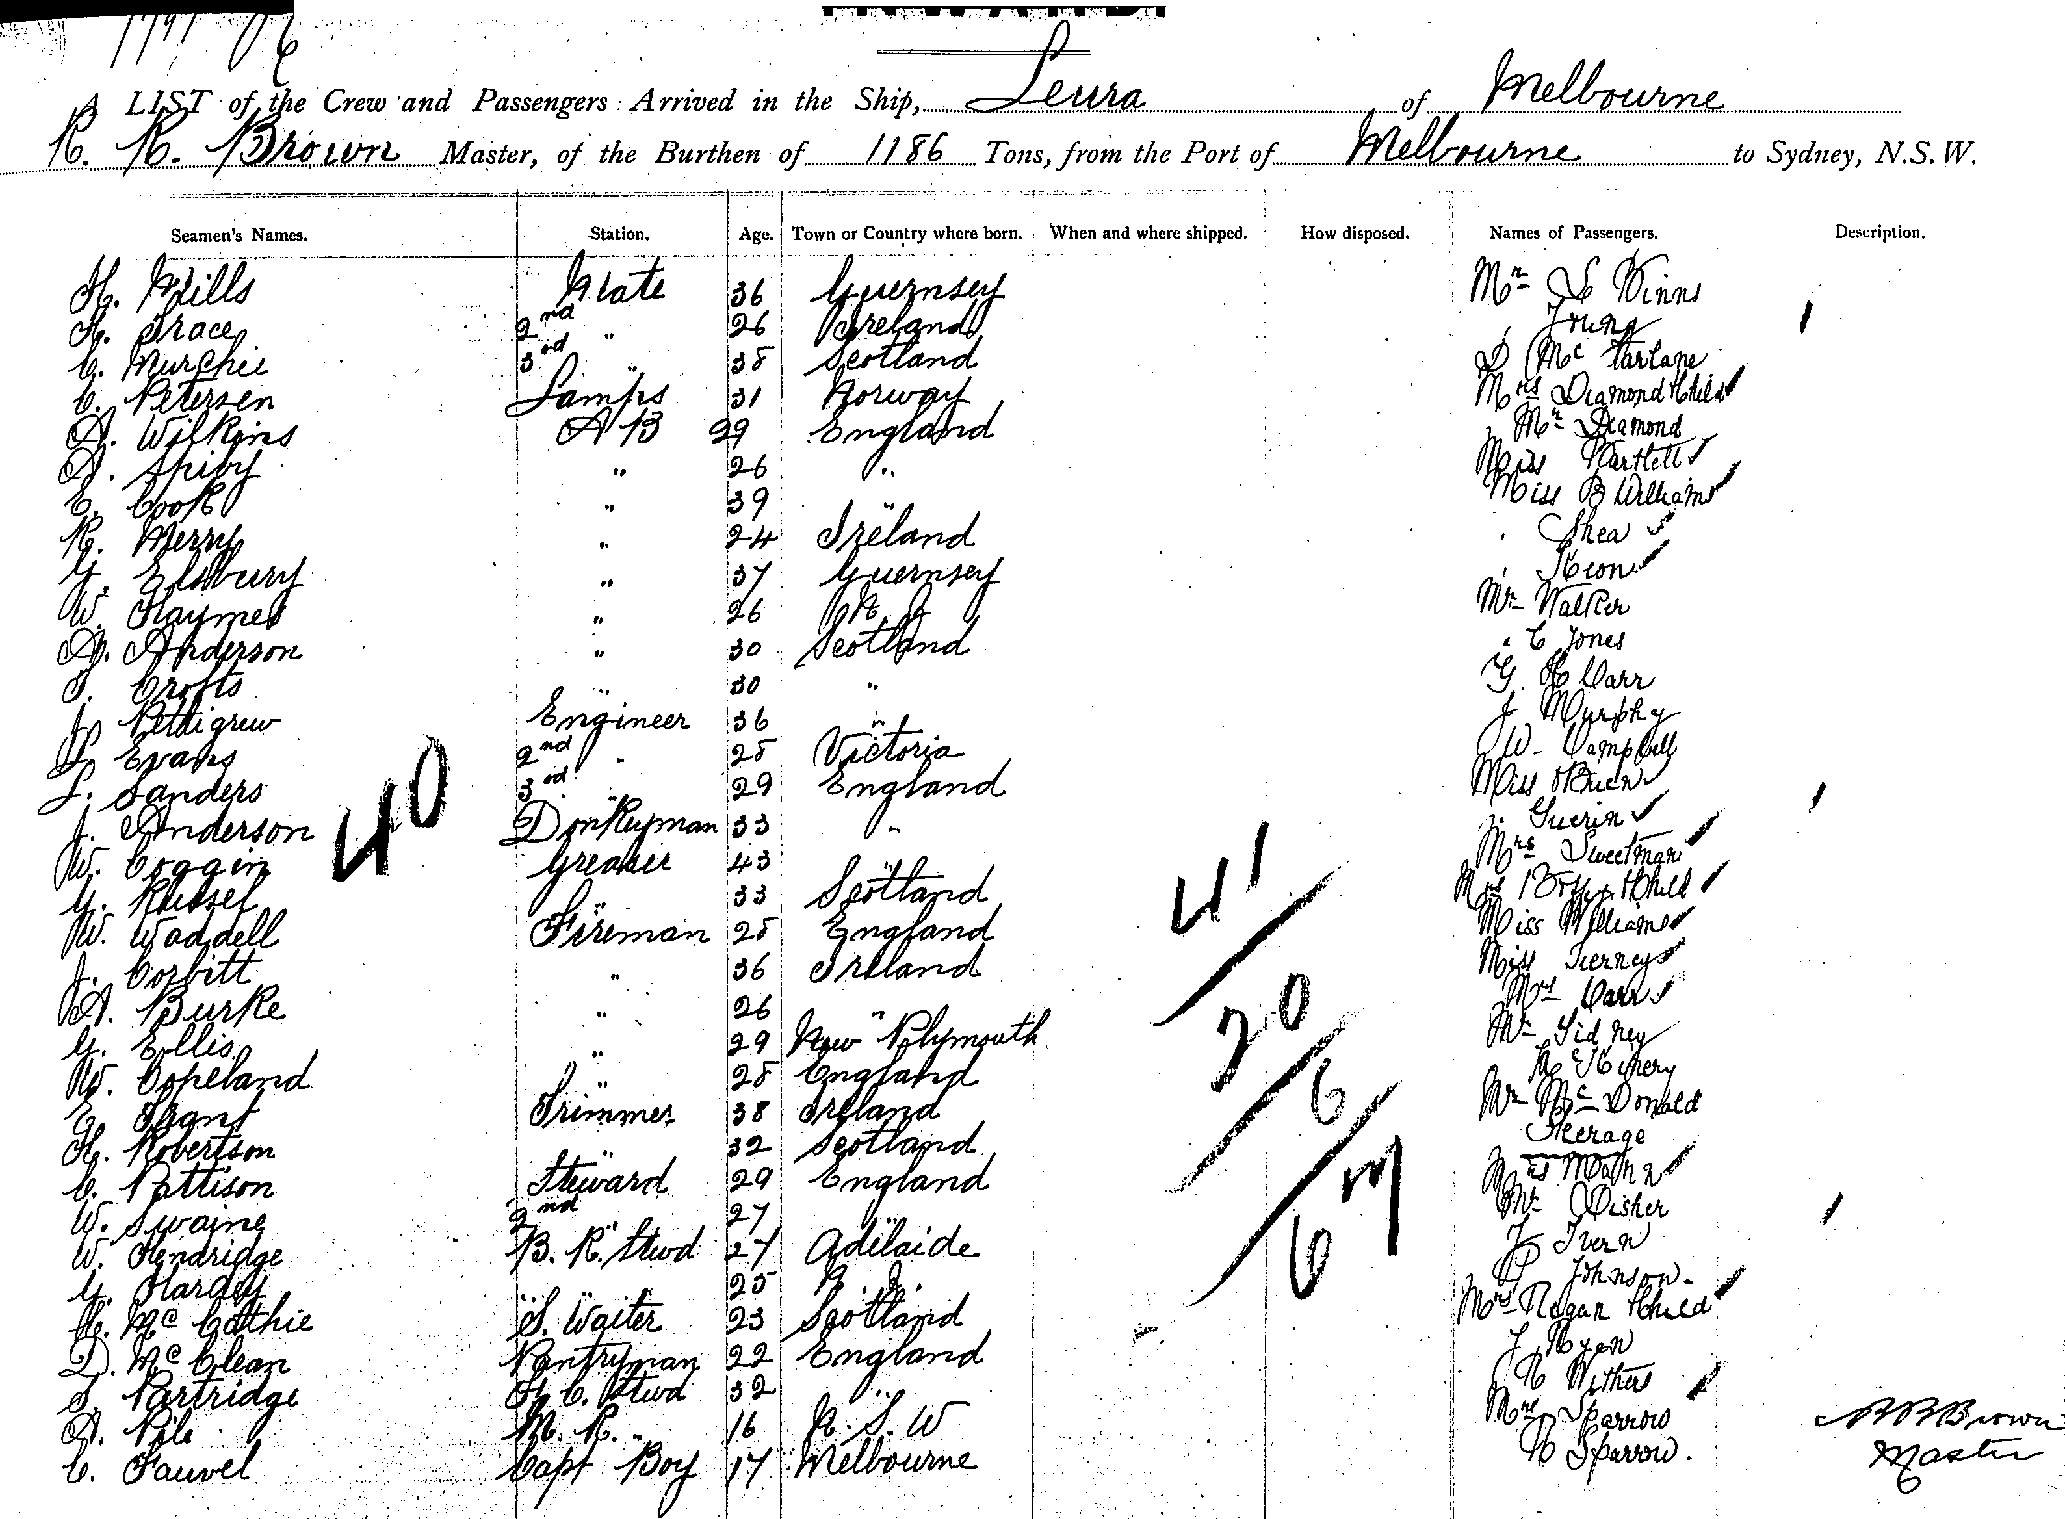 A LIST of the Crew and Passengers Arrived in the Ship, Leura of Melbourne
R. R. Brown Master, of the Burthen of 1186 Tons, from the Port of Melbourne to Sydney, N.S.W.
Seamen's Names. Station. Age. Town or Country where born. When and where shipped. How disposed. Names of Passengers. Description.
H. Mills Mate 36 Guernsey Mr S Winns
H. Grace 2nd " 26 Ireland Young
C. Murchie 3rd " 38 Scotland D McFarlane
C. Petersen Lamps 31 Norway Mrs Diamond & Child
A. Wilkins AB 29 England Mr Diamond
A. Spiby " 26 " Miss Bartlett
E. Cook " 39 " Miss B Williams
R. Merry " 24 Ireland Shea
G. Elsbury " 37 Guernsey Keon
W. Haymes " 26 N. Z Mr Walker
A. Anderson " 30 Scotland " C Jones
J. Crofts " 30 " G. H Carr
J. Pettigrew Engineer 36 " J Murphy
Evans 2nd " 28 Victoria W Campbell
L. Sanders 3rd " 29 England Miss O'Brien
J. Anderson Donkeyman 33 " Guerin
W. Coggin Greaser 43 " Mrs Sweetman
G. Russel " 33 Scotland Mrs & Child
W. Waddell Fireman 28 England Miss Williams
J. Corbitt " 36 Ireland Miss Tierney
A. Burke " 26 " Mrs Carr
G. Ellis " 29 New Plymouth Mr Sidney
W. Copeland " 28 England
E. Grant Trimmer 38 Ireland Mr McDonald
H. Robertson " 32 Scotland Steerage
C. Pattison Steward 29 England Mrs Mann
W. Swaine 2nd " 27 " Mr Disher
W. Hendridge B. R. Stwd 27 Adelaide J Ivern
G. Hardy " " 25 N. Z. Johnson
Mc Cathie S. Waiter 23 Scotland Mrs Regan & Child
D. McClean Pantryman 22 England J Ryan
S. Partridge F. C. Stwd 32 " Withers
A. Pile M. R. " 16 N. S. W Mrs Sparrow
C. Fauvel Capt Boy 17 Melbourne Sparrow.
40
41
20
6
67
R R Brown
Master